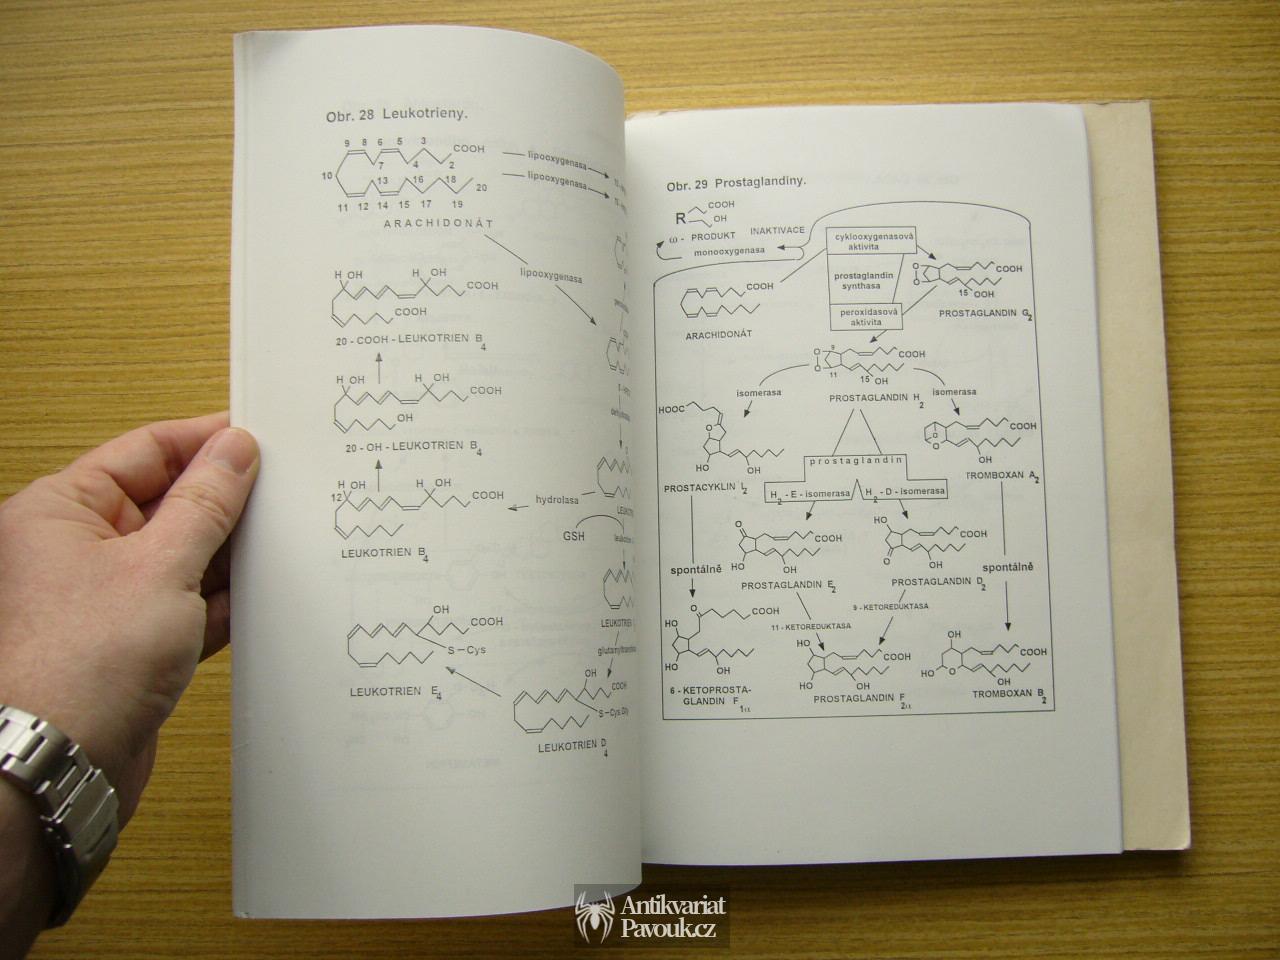 Obr. 28 Leukotrieny.
9 8 6 5 3
COOH
7 4 2
10
13 16 18
20
11 12 14 15 17 19
ARACHIDONÁT
lipooxygenasa
lipooxygenasa
lipooxygenasa
H OH H OH
COOH
COOH
20 - COOH - LEUKOTRIEN B4
H OH H OH
COOH
OH
20 - OH - LEUKOTRIEN B4
H OH H OH
12
COOH
LEUKOTRIEN B4
hydrolasa
GSH
OH
COOH
S-Cys
LEUKOTRIEN E4
OH
COOH
S-Cys Gly
LEUKOTRIEN D4
Obr. 29 Prostaglandiny.
R
COOH
OH
ω - PRODUKT INAKTIVACE
monooxygenasa
cyklooxygenasová
aktivita
prostaglandin
synthasa
peroxidasová
aktivita
COOH
ARACHIDONÁT
O
O
COOH
15 OOH
PROSTAGLANDIN G2
O
O
9
11
COOH
15 OH
PROSTAGLANDIN H2
isomerasa
isomerasa
HOOC
O
HO OH
PROSTACYKLIN I2
O
O
COOH
OH
TROMBOXAN A2
prostaglandin
H2 - E - isomerasa
H2 - D - isomerasa
O
COOH
HO OH
PROSTAGLANDIN E2
HO
COOH
O OH
PROSTAGLANDIN D2
spontálně
spontálně
11 - KETOREDUKTASA
9 - KETOREDUKTASA
O
COOH
HO
HO OH
6 - KETOPROSTA-
GLANDIN F1α
HO
COOH
HO OH
PROSTAGLANDIN F2α
OH
COOH
HO O OH
TROMBOXAN B2
Antikvariat
Pavouk.cz